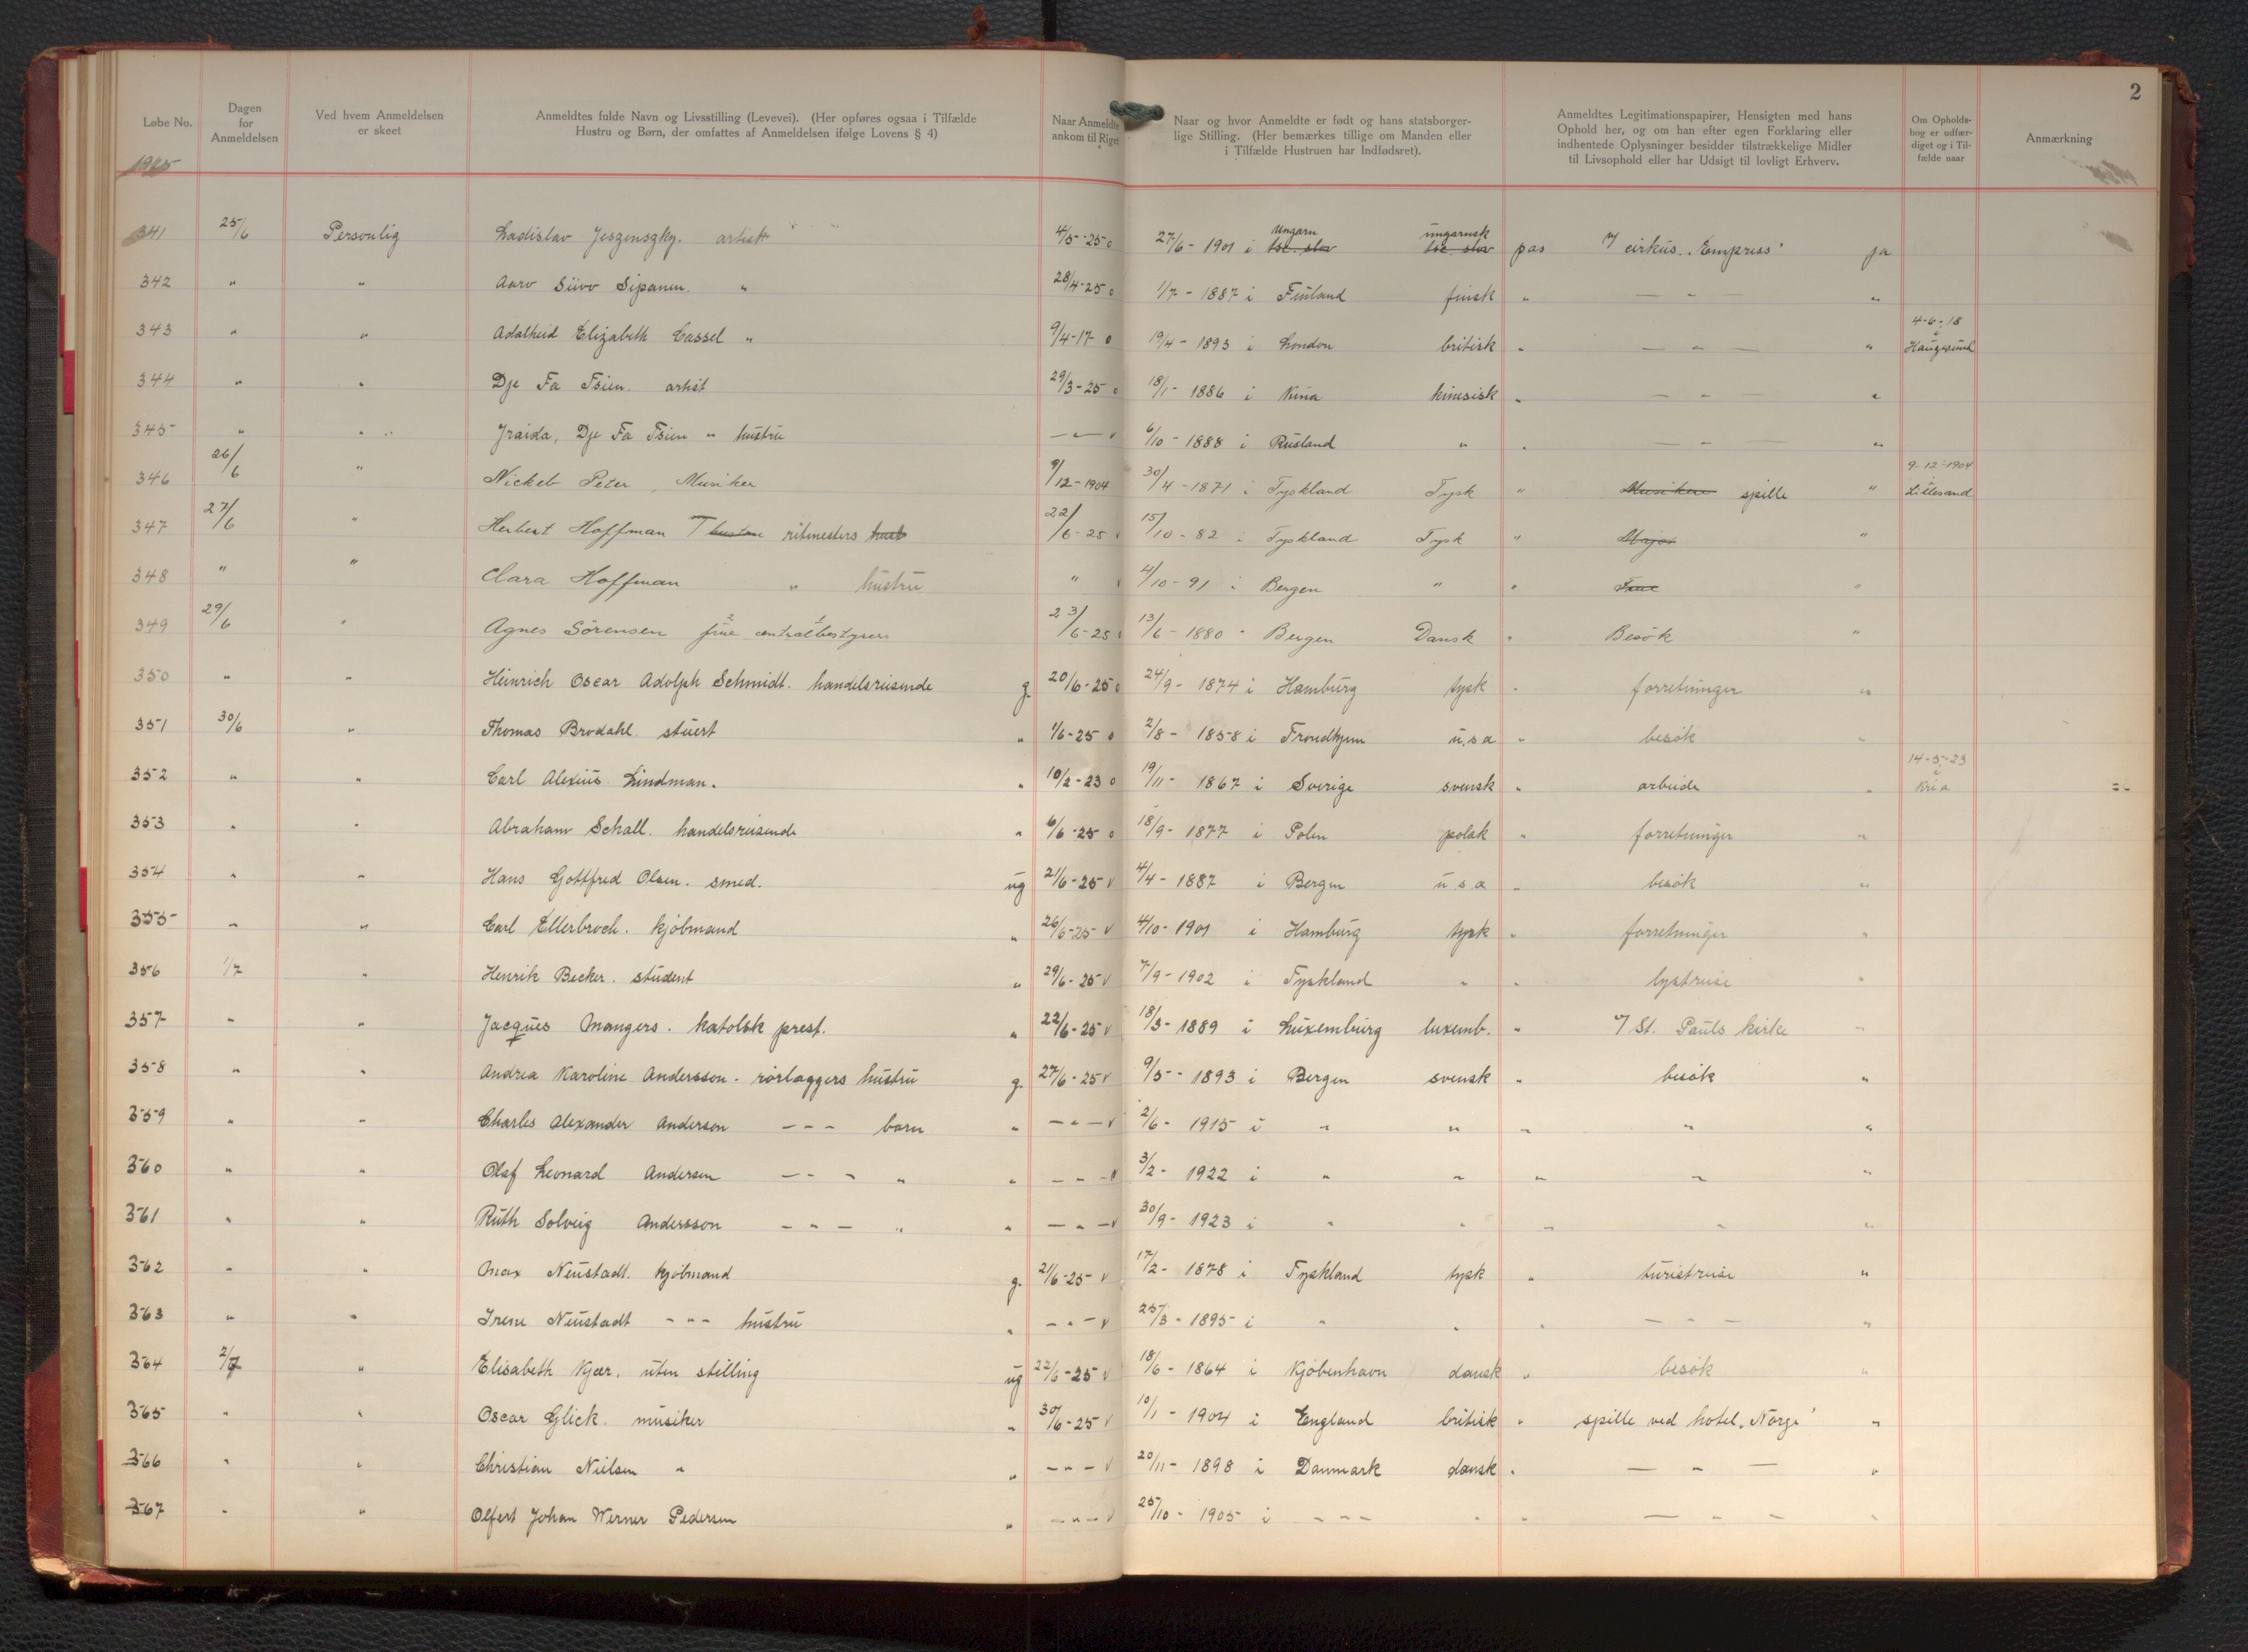 2
Løbe No.
Dagen for Anmeldelsen
Ved hvem Anmeldelsen er skeet
Anmeldtes fulde Navn og Livsstilling (Levevei). (Her opføres ogsaa i Tilfælde Hustru og Børn, der omfattes af Anmeldelsen ifølge Lovens § 4)
Naar Anmeldte ankom til Riget
Naar og hvor Anmeldte er født og hans statsborgerlige Stilling. (Her bemærkes tillige om Manden eller i Tilfælde Hustruen har Indfødsret).
Anmeldtes Legitimationspapirer, Hensigten med hans Ophold her, og om han efter egen Forklaring eller indhentede Oplysninger besidder tilstrækkelige Midler til Livsophold eller har Udsigt til lovligt Erhverv.
Om Opholdsbog er udfærdiget og i Tilfælde naar
Anmærkning
1925
341 25/6 Personlig Ladislav Jeszenszky. artist 4/5-25 o 27/6 - 1901 i Ungarn tsc. slov ungarsk tsc. slov pas v/ cirkus „Empress" ja
342 " " Aaro Siivo Sipanen. " 28/4-25 o 1/7 - 1887 i Finland finsk " — " — "
343 " " Adalheid Elizabeth Cassel " 9/4-17 o 19/4 - 1893 i London britisk " — " — " 4-6-18 i Haugesund
344 " " Dje Fa Tsien. artist 29/3-25 o 18/1 - 1886 i Kina kinesisk " — " — "
345 " " Iraida, Dje Fa Tsien " hustru — " — v 6/10 - 1888 i Rusland " " — " — "
346 26/6 " Nickeb Peter, Musiker 9/12-1904 30/4 - 1871 i Tyskland Tysk " Musikere spille " 9-12-1904 i Lillesand
347 27/6 " Herbert Hoffman ritmesters 22/6-25 v 15/10 - 82 i Tyskland Tysk " Major "
348 " " Clara Hoffman " hustru " v 4/10 - 91 i Bergen " " Frue "
349 29/6 " Agnes Sørensen frue centralbestyrers 23/6-25 13/6 - 1880 " Bergen Dansk " Besøk "
350 " " Heinrich Oscar Adolph Schmidt. handelsreisende g. 20/6-25 o 24/9 - 1874 i Hamburg tysk " forretninger "
351 30/6 " Thomas Brodahl. stuert " 1/6-25 o 2/8 - 1858 i Trondhjem u.s.a " besøk "
352 " " Carl Alexius Lindman. " 10/2-23 o 19/11 - 1867 i Sverige svensk " arbeide " 14-5-23 i Kria
353 " " Abraham Schall. handelsreisende " 6/6-25 o 18/9 - 1877 i Polen polsk " forretninger "
354 " " Hans Gottfred Olsen. smed. ug 21/6-25 v 4/4 - 1887 i Bergen u s a " besøk "
355 " " Carl Ellerbroch. kjøbmand " 26/6-25 v 4/10 - 1901 i Hamburg tysk " forretninger "
356 1/7 " Henrik Becker. student " 29/6-25 v 7/9 - 1902 i Tyskland " " lystreise "
357 " " Jacques Mangers. katolsk prest. " 22/6-25 v 18/3 - 1889 i Luxemburg luxemb. " v/ St. Pauls kirke "
358 " " Andrea Karoline Andersson. rørlæggers hustru g. 27/6-25 v 9/5 - 1893 i Bergen svensk " besøk "
359 " " Charles Alexander Anderson — " — barn " — " — v 2/6 - 1915 i " " " " "
360 " " Olaf Leonard Andersen — " — " " — " — v 3/2 - 1922 i " " " " "
361 " " Ruth Solveig Andersson — " — " " — " — v 30/9 - 1923 i " " " " "
362 " " Max Neustadt. kjøbmand g. 21/6-25 v 17/2 - 1878 i Tyskland tysk " turistreise "
363 " " Irene Neustadt — " — hustru " — " — v 25/3 - 1895 i " " " — " — "
364 2/7 " Elisabeth Kjær. uten stilling ug 22/6-25 v 18/6 - 1864 i Kjøbenhavn dansk " besøk "
365 " " Oscar Glick. musiker " 30/6-25 v 10/1 - 1904 i England britisk " spille ved hotel „Norge" "
366 " " Christian Nielsen " " — " — v 20/11 - 1898 i Danmark dansk " — " — "
367 " " Olfert Johan Werner Pedersen " — " — v 25/10 - 1905 i — " — " " — " — "